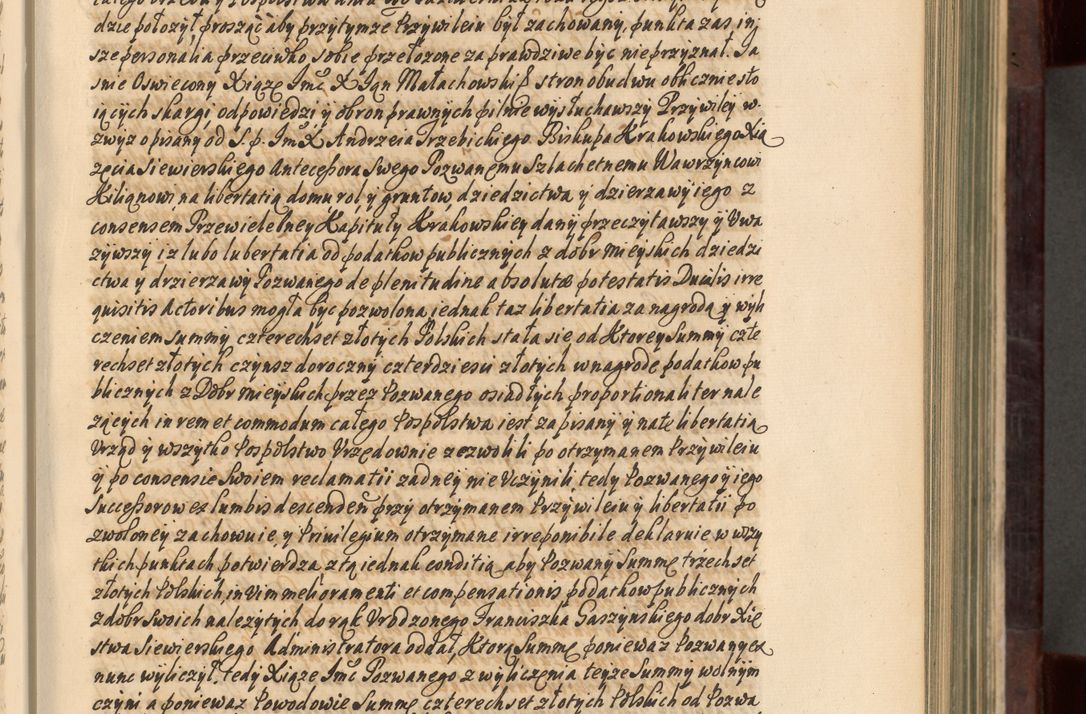 dzie położył, prosząc aby przytymze Przywileiu był zachowany, punkta zas in¬
sze personalia przeciwko sobie przełozone za prawdziwe być nieprzyznał. Ja
snie Oswiecony Xiąze Jmć X Jan Małachowski z stron obudwu oblicznie sto
iących skargi odpowiedzi y obron prawnych pilnie wysłuchawszy Przywiley w.
zwyz opisany od S. p. Jmć X Andrzeia Trzebickiego Biskupa Krakowskiego Xią
zęcia Siewierskiego Antecessora Swego Pozwanemu Szlachetnemu Wawrzyncowi
Kilianowi na libertatią domu rol y gruntow dziedzictwa y dzierzawy iego z
consensem Przewielebney Kapituły Krakowskiey dany przeczytawszy y Vwa
zywszy iz lubo lubertatia od podatkow publicznych z dobr Mieyskich dziedzi
ctwa y drzierzawy Pozwanego de plenitudine absolutæ potestatis Ducalis irre
quisitis Actoribus mogła być pozwolona, iednak taz libertatia za nagrodą y wyli
czeniem Summy czterechset złotych Polskich stała się, od Ktorey Summy czte
rechset złotych czynsz doroczny czterdziesci złotych w nagrodę podatkow pu
blicznych z Dobr mieyskich przez Pozwanego osiadłych proportionaliter nale
zących in rem et commodum całego Pospolstwa iest zapisany y natę libertatią
Vrząd y wszytko Pospolstwo Vrzędownie zezwolili po otrzymanem Przywileiu
y po consensie Swoiem reclamatii zadney nie Vczynili, tedy Pozwanego y iego
Successorow ex lumbis descenden̄ przy otrzymanem Przywileiu y libertatii po
zwoloney zachowuie, y Privilegium otrzymane irreponibile deklaruie w wszy
tkich punktach potwierdza z tą iednak conditią aby Pozwany Summę trzechset
złotych Polskich, in Vim melioramenti et compensationis podatkow publicznych
z dobr Swoich nalezytych do rąk Vrodzonego Franciszka Gaszynskiego dobr Xię
stwa Siewierskiego Administratora oddał, Ktorą Summę poniewaz Pozwany ex
nunc wyliczył, tedy Xiąze Jmć Pozwanego z wyliczenia teyze Summy wolnym
czyni a poniewaz Powodowie Summę czterechset złotych Polskich od Pozwa